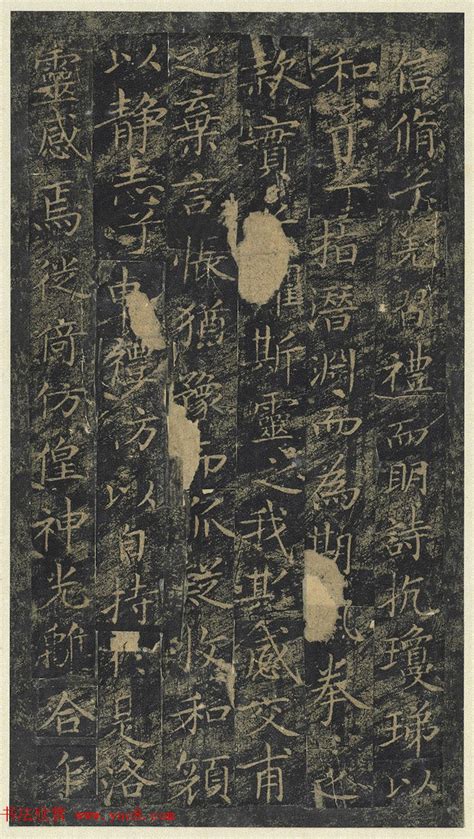 信脩兮羌習禮而明詩抗瓊珶以
和予兮指潛淵而為期拳
款實懼斯靈之我欺感交甫
之棄言悵猶豫而狐疑收和顏
以靜志兮申禮防以自持於是洛
靈感焉徙倚仿偟神光離合乍
书法欣赏 www.yac8.com